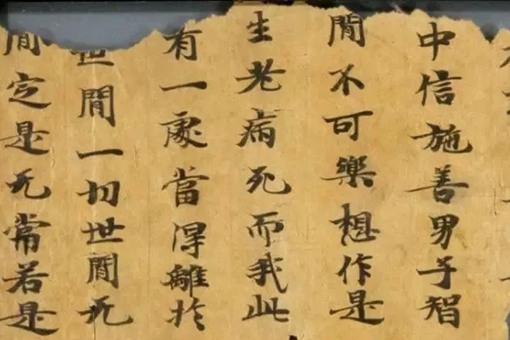 中信施善男子智
間不可樂想作是
生老病死而我此
有一處當淂離於
世間一切世間无
間定是无常若是